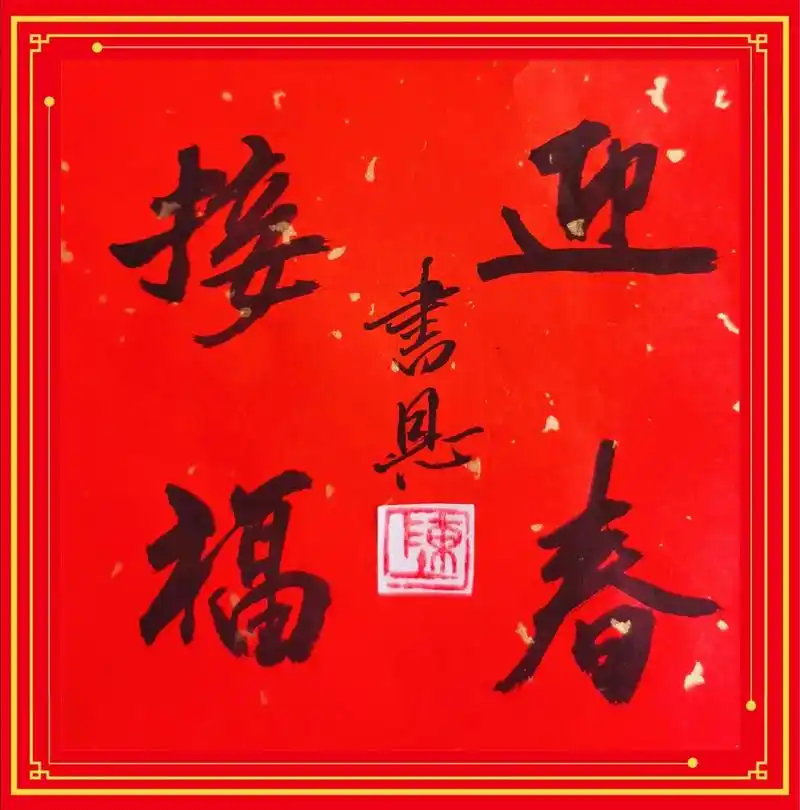 迎春
接福
書恩
陳